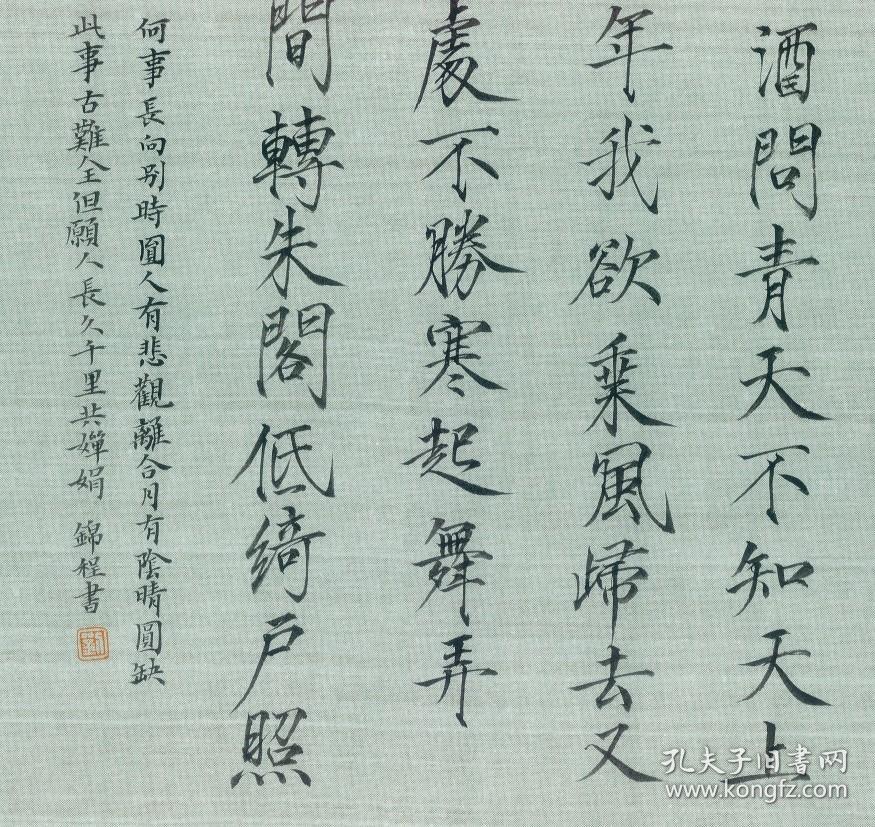 酒問青天不知天上
年我欲乗風歸去又
處不勝寒起舞弄
間轉朱閣低綺户照
何事長向别時圓人有悲觀離合月有陰晴圓缺
此事古難全但願人長久千里共嬋娟 錦程書
孔夫子旧书网
www.kongfz.com